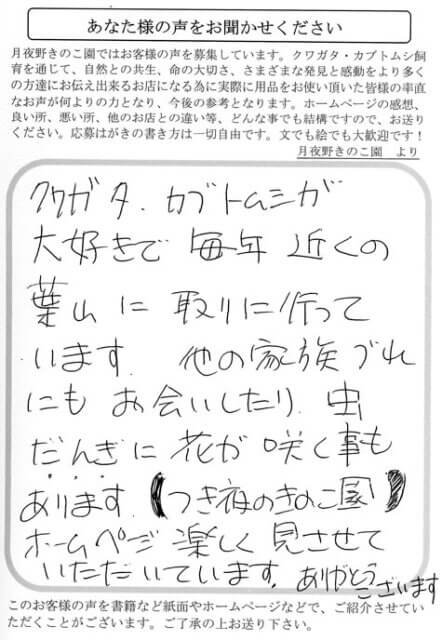 あなた様の声をお聞かせください
月夜野きのこ園ではお客様の声を募集しています。クワガタ・カブトムシ飼
育を通じて、自然との共生、命の大切さ、さまざまな発見と感動をより多く
の方達にお伝え出来るお店になる為に実際に用品をお使い頂いた皆様の率直
なお声が何よりの力となり、今後の参考となります。ホームページの感想、
良い所、悪い所、他のお店との違い等、どんな事でも結構ですので、お送り
ください。応募はがきの書き方は一切自由です。文でも絵でも大歓迎です！
月夜野きのこ園　より
クワガタ．カブトムシが
大好きで 毎年 近くの
葉山に 取りに行って
います． 他の家族づれ
にも お会いしたり．虫
だんぎに 花が 咲く事も
あります．【つき夜のきのこ園】
ホームページ 楽しく 見させて
いただいています．ありがとう
ございます
このお客様の声を書籍など紙面やホームページなどで、ご紹介させてい
ただくことがございます。ご了承の上お送り下さい。